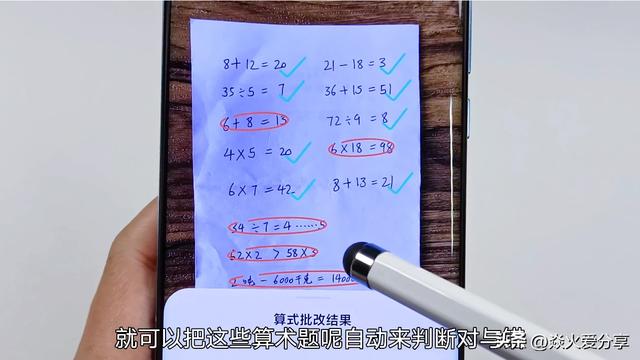 8+12=20
21-18=3
35÷5=7
36+15=51
6+8=15
72÷9=8
4×5=20
6×18=98
6×7=42
8+13=21
34÷7=4……
62×2>58×3
2吨-6000千克=1400
算式批改结果
就可以把这些算术题呢自动来判断对与错
头条@焱火爱分享